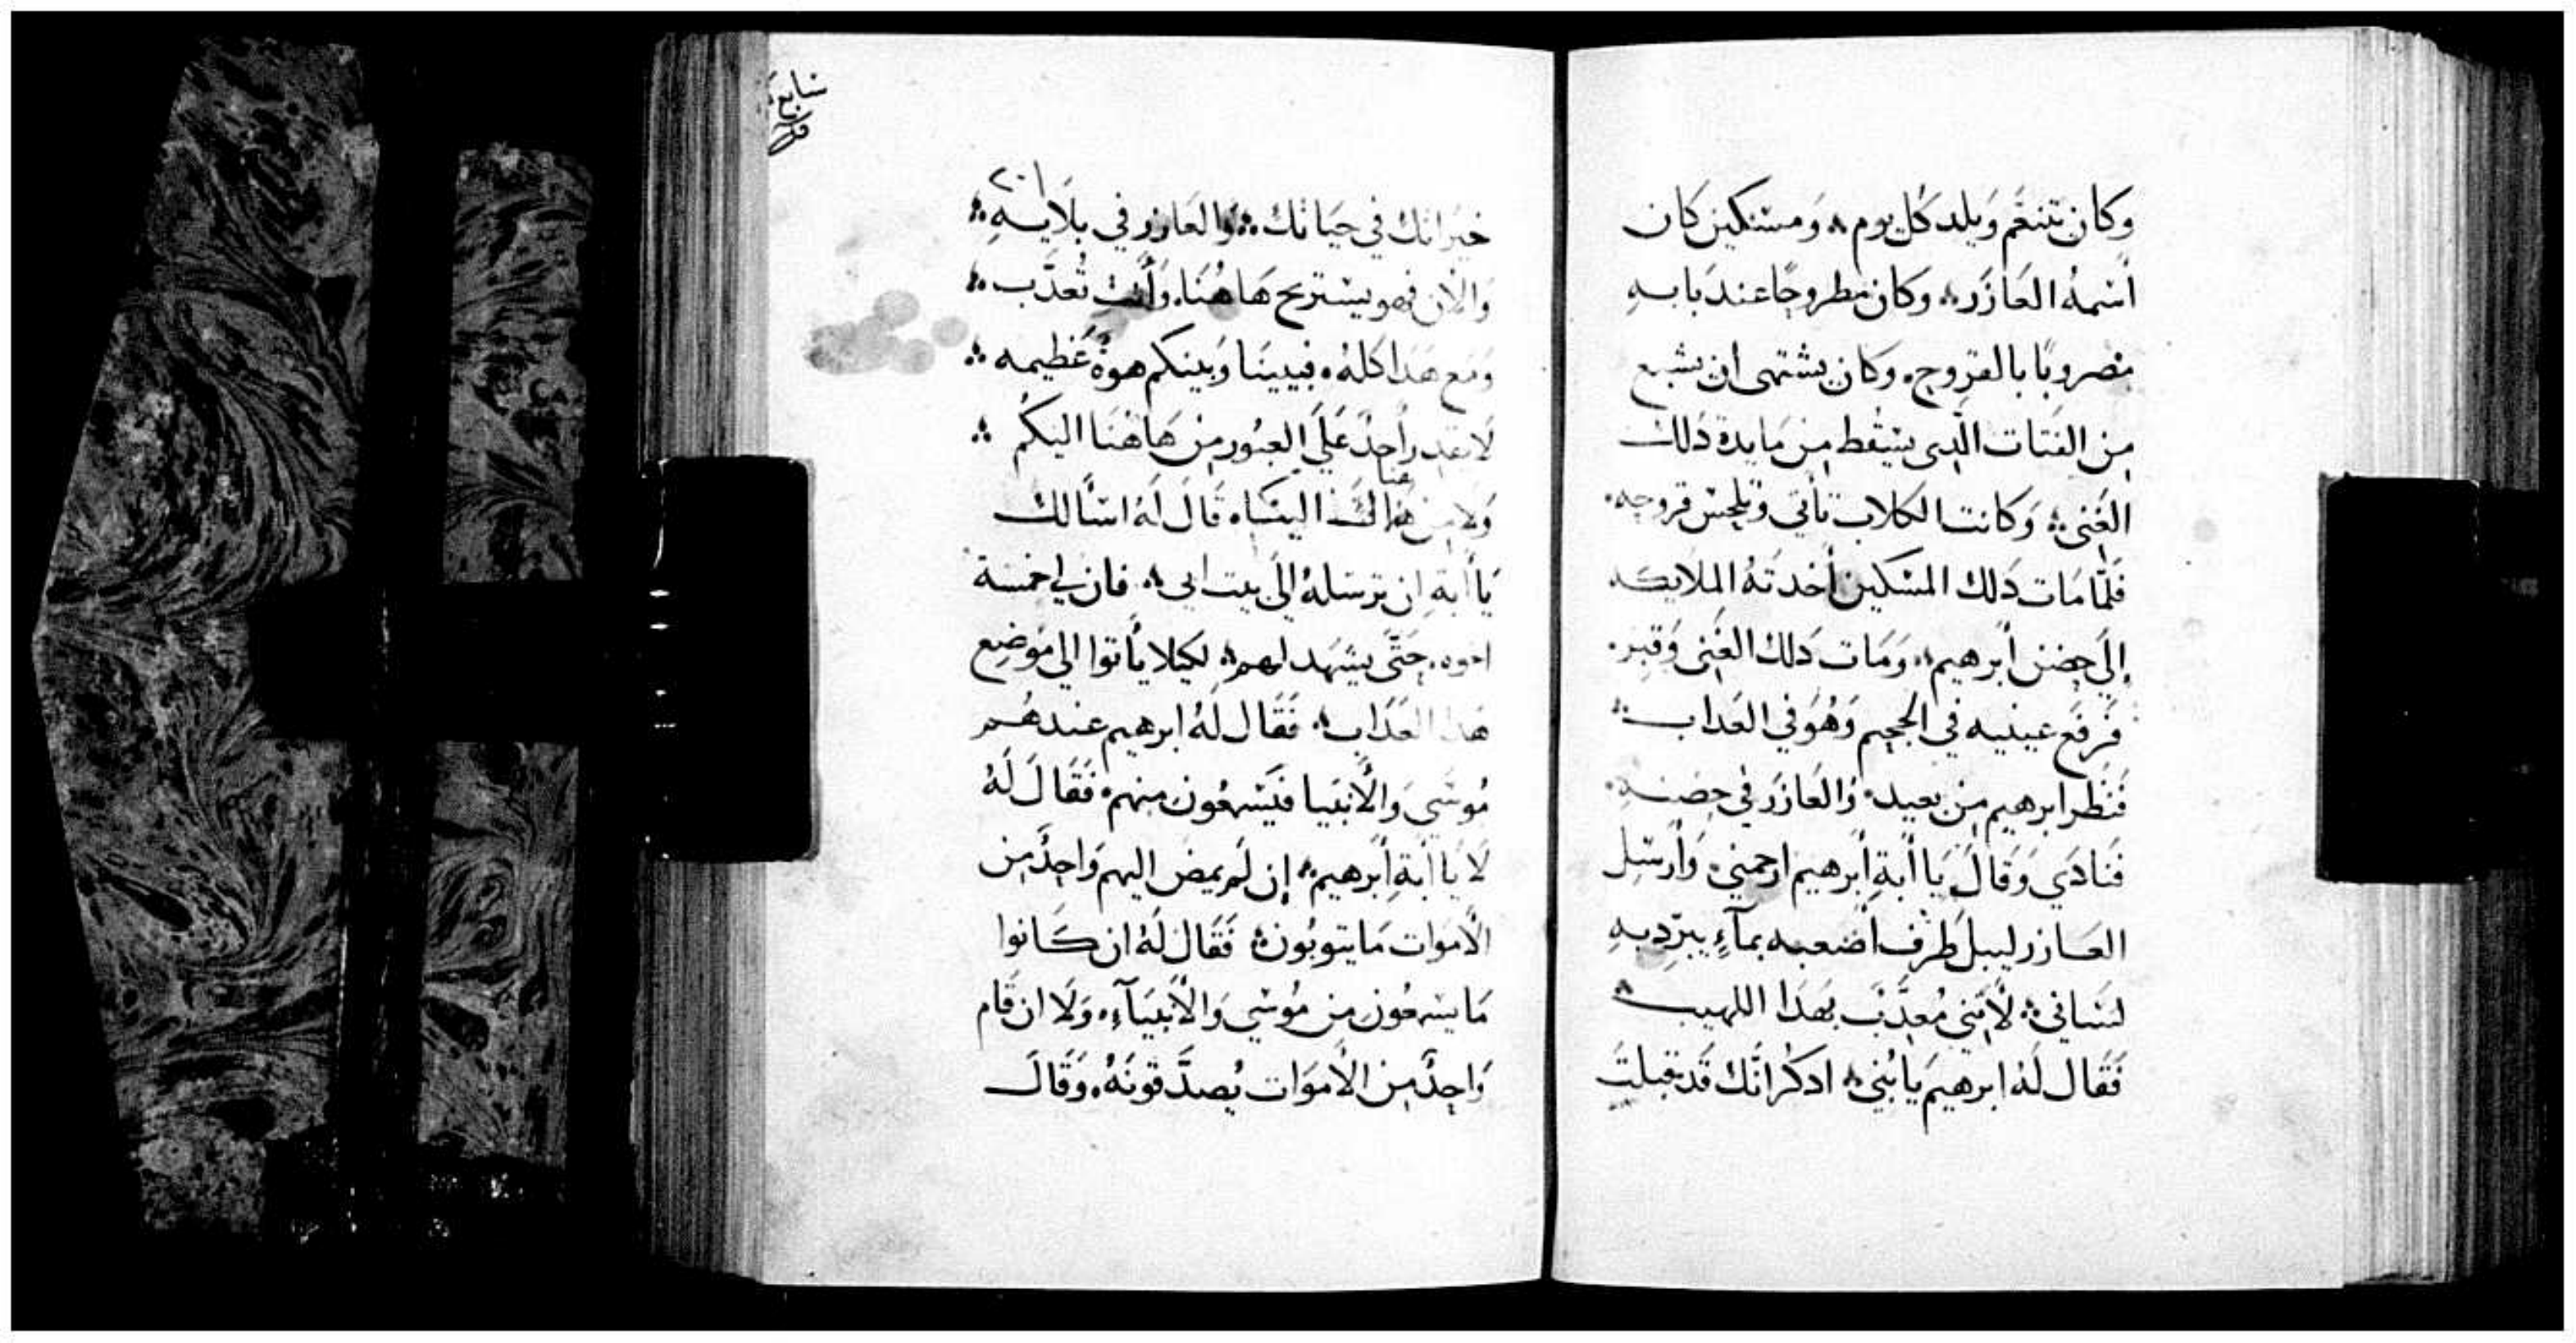 وكان يتنعّم ويلد كل يوم ۞ ومسكين كان
اسمهُ العَازَر ۞ وكان مطروحًا عند بابهِ
مضروبًا بالقروح. وكان يشتهى ان يشبع
من الفتات الَّدى يسقط من مايدة دلك
الغنى ۞ وكانت الكلاب تأتى وتلحس قروحه.
فلمَّا مات دلك المسكين أخدتهُ الملايكـه
إلى حضن أبرهيم ۞ ومات دلك الغنى وقبر.
فرفع عينيه في الجحيم وهُو في العداب ۞
فنظر ابرهيم من بعيد. والعازر في حضنـهِ.
فنادي وقال يا أبةِ أبرهيم ارحمني. وأرسل
العـازر ليبل طرف اصعبه بمآءٍ يبرّد بهِ
لساني ۞ لأنني مُعدَّب بهدا اللهيب ۞
فقال لهُ ابرهيم يا بُني ۞ ادكر انَّك قد قبلت
سابع
٢٠١
خيراتك في حياتك ۞ والعازر في بلايـهِ ۞
والأن فهو يستريح هاهُنا. وأنت تُعدَّب ۞
ومع هدا كله. فبيننا وبينكم هوة عظيمه ۞
لا يقدر أحدٌ علي العبُور من هاهنا اليكم ۞
ولا من هنالك الينـا. قال لهُ اسألك
يا أبةِ ان ترسله الى بيت ابى ۞ فان لى خمسة
اخوه. حتَّى يشهد لهم ۞ لكيلا يأتوا الى موضع
هدا العداب ۞ فقال لهُ ابرهيم عندهـم
مُوسَي والأنبيا فيسمعُون منهم. فقال لهُ
لا يا أبةِ أبرهيم ۞ إن لم يمض اليهم واحدٌ من
الأموات ما يتوبُون ۞ فقال لهُ ان كـانوا
ما يسمعُون من مُوسَي والأنبيآءِ. ولا ان قام
واحدٌ من الأموات يُصدَّقونهُ. وقال